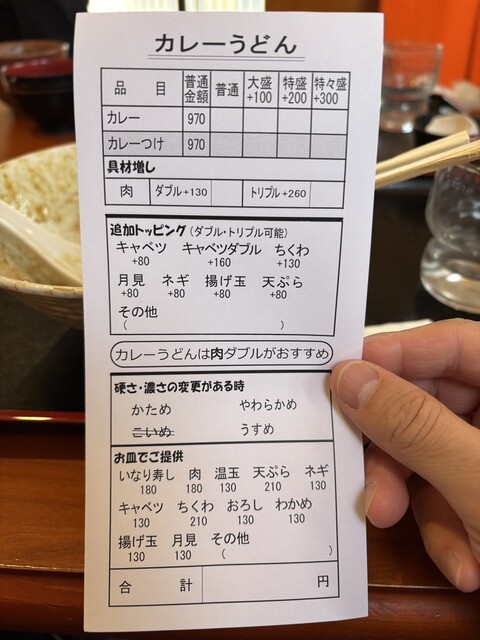 カレーうどん
品 目 普通金額 普通 大盛+100 特盛+200 特々盛+300
カレー 970
カレーつけ 970
具材増し
肉 ダブル+130 トリプル+260
追加トッピング(ダブル・トリプル可能)
キャベツ キャベツダブル ちくわ
+80 +160 +130
月見 ネギ 揚げ玉 天ぷら
+80 +80 +80
その他
( )
カレーうどんは肉ダブルがおすすめ
硬さ・濃さの変更がある時
かため やわらかめ
こいめ うすめ
お皿でご提供
いなり寿し 肉 温玉 天ぷら ネギ
180 180 130 210 130
キャベツ ちくわ おろし わかめ
130 210 130 130
揚げ玉 月見 その他
130 130 ( )
合 計 円